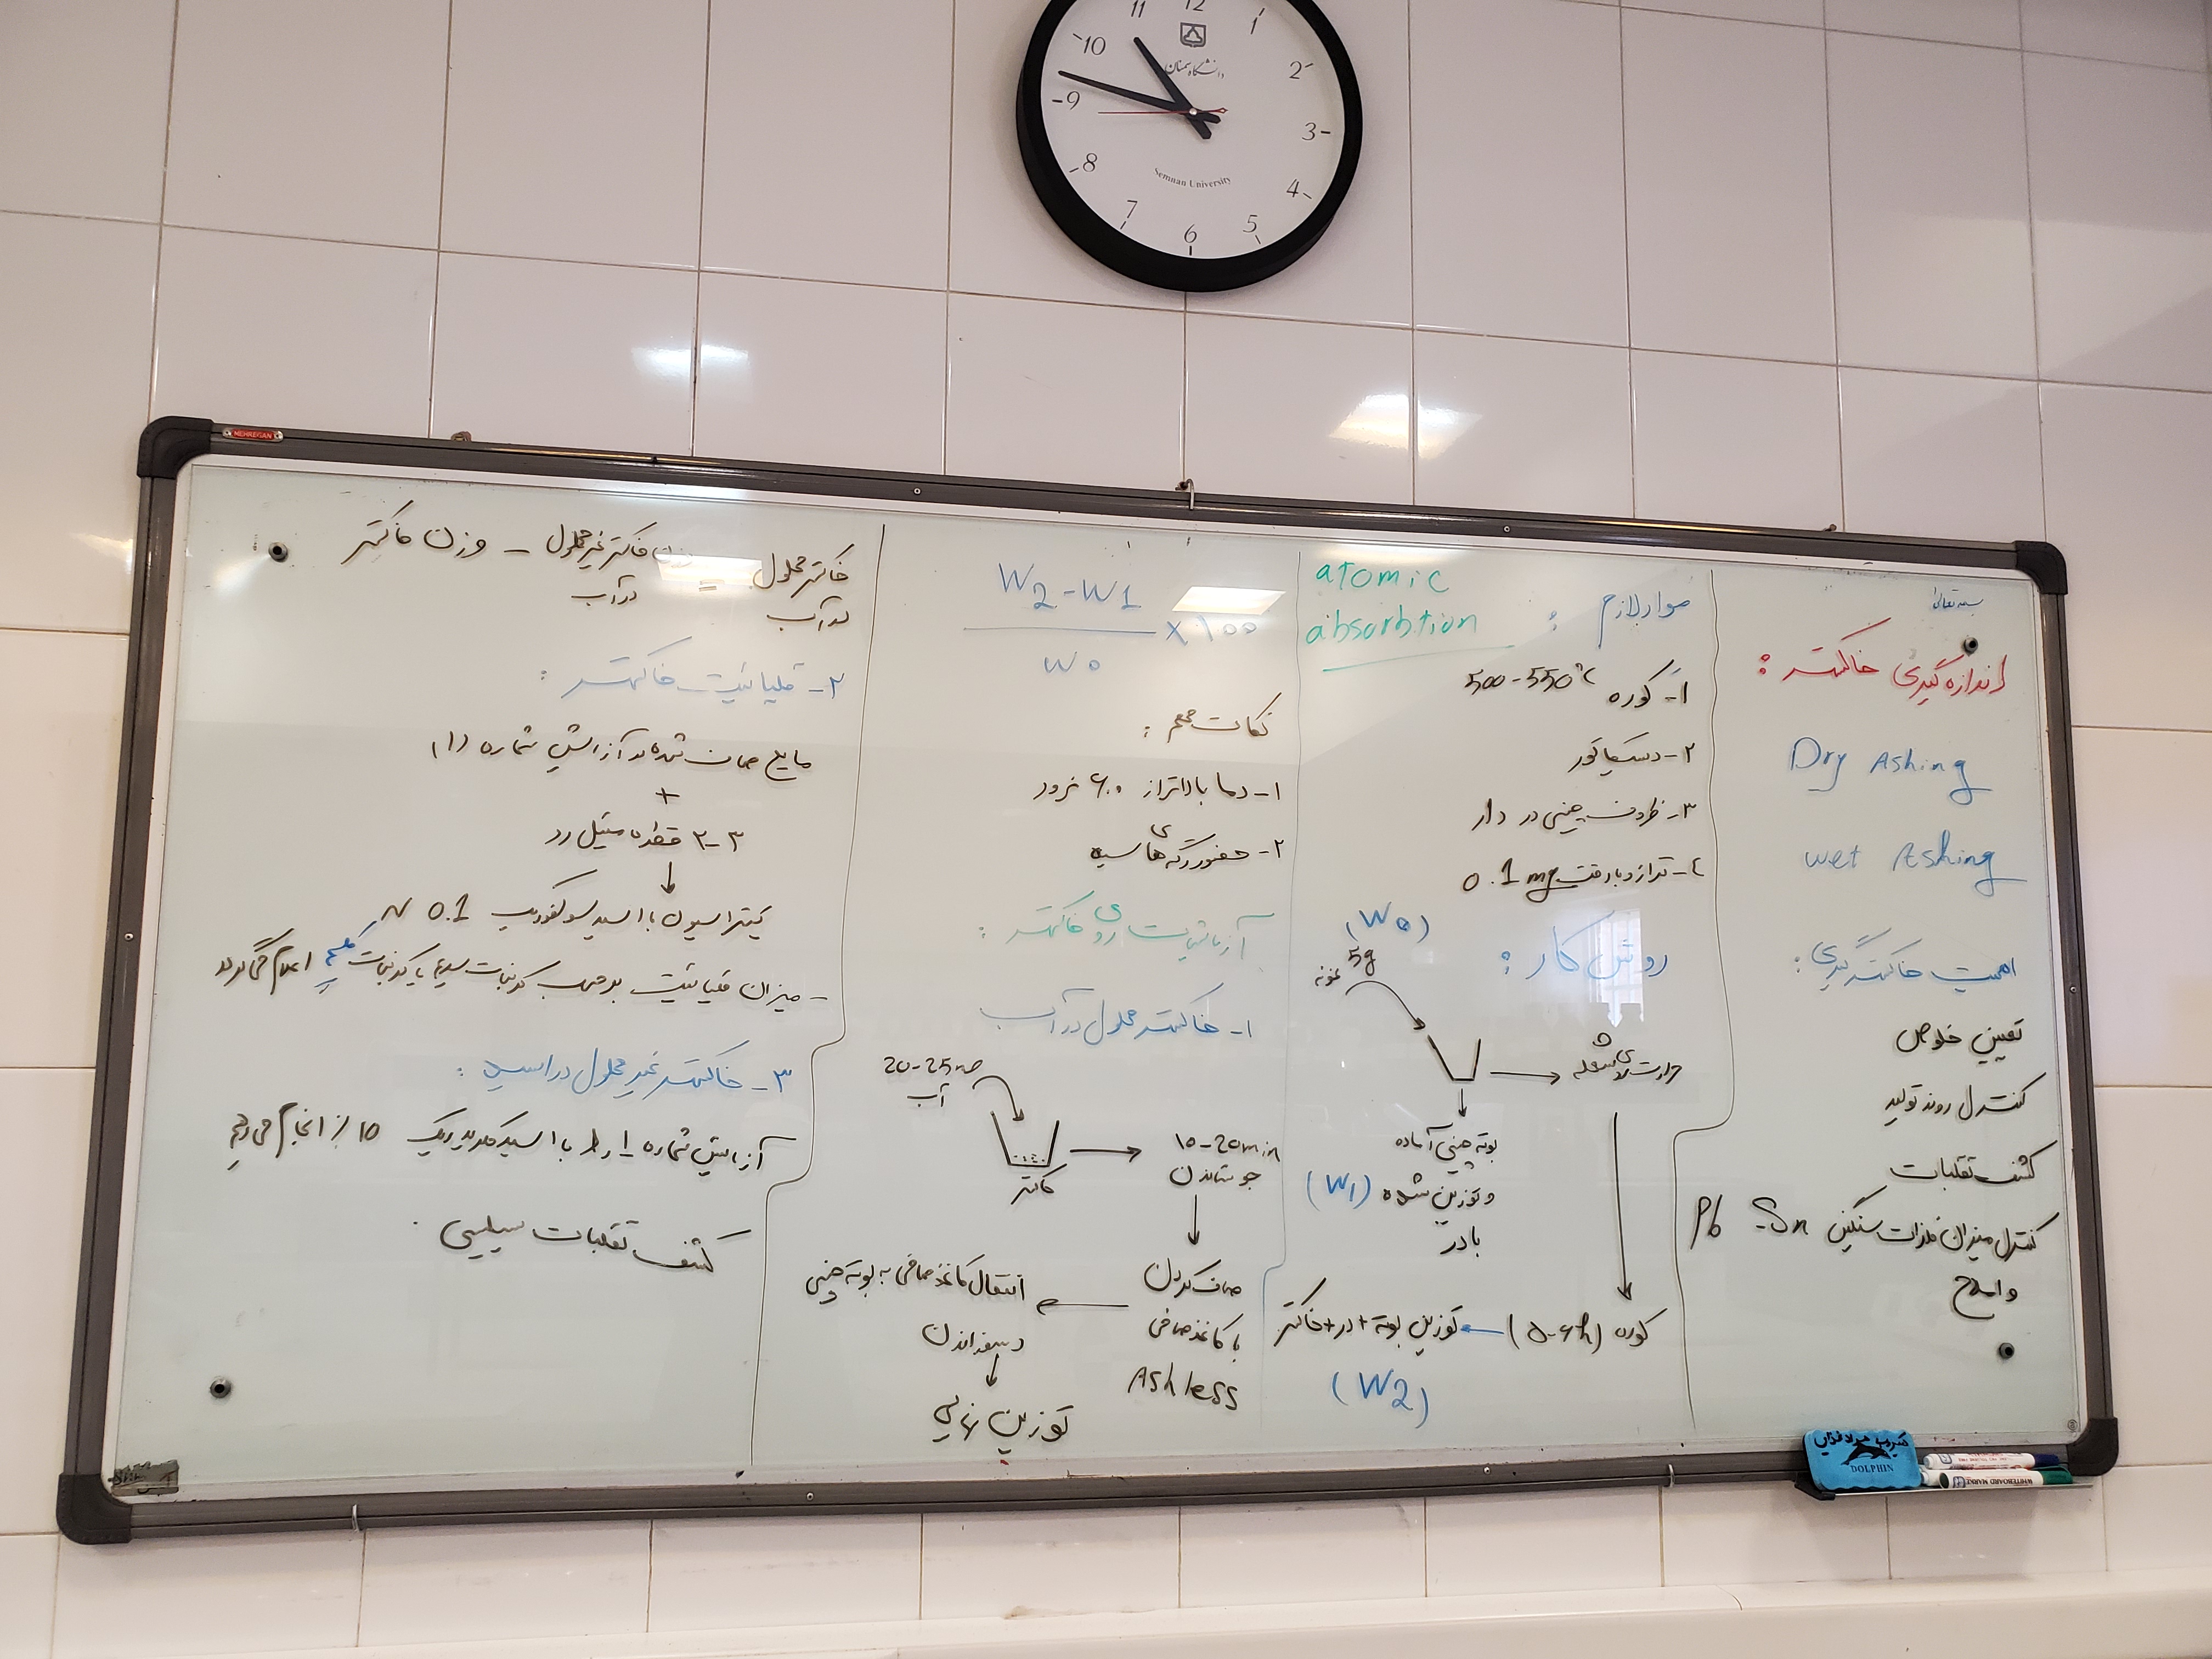 11
12
1
10
2
دانشگاه سمنان
9
3
8
4
Semnan University
7
5
6
MEHREGAN
بسمه تعالی
اندازه گیری خاکستر :
Dry Ashing
wet Ashing
اهمیت خاکسترگیری :
تعیین خلوص
کنترل روند تولید
کشف تقلبات
کنترل میزان فلزات سنگین Sn - Pb
و املاح
atomic
absorbtion
موارد لازم :
۱- کوره 500-550°C
۲- دسیکاتور
۳- ظروف چینی در دار
۴- ترازو با دقت 0.1 mg
روش کار :
(W0)
5g
نمونه
حرارت روی شعله
بوته چینی آماده
و توزین شده (W1)
با در
کوره (۵-۶h)
توزین بوته + در + خاکستر
(W2)
W2-W1
x ۱۰۰
W0
نکات مهم :
۱- دما بالاتر از ۶۰۰ نرود
۲- حضور رگه های سیاه
آزمایشات روی خاکستر :
۱- خاکستر محلول در آب
20-25
آب
خاکستر
10-20min
جوشاندن
صاف کردن
با کاغذ صافی
Ashless
انتقال کاغذ صافی به بوته چینی
و سوزاندن
توزین نهایی
خاکستر محلول در آب = وزن خاکستر غیر محلول در آب - وزن خاکستر
۲- قلیائیت خاکستر :
مایع صاف شده در آزمایش شماره (۱)
+
۲-۳ قطره متیل رد
تیتراسیون با اسید سولفوریک 0.1 N
- میزان قلیائیت بر حسب کربنات سدیم یا کربنات کلسیم اعلام می گردد
۳- خاکستر غیر محلول در اسید :
آزمایش شماره ۱ را با اسید کلریدریک ۱۰٪ انجام می دهیم
کشف تقلبات سیلیسی .
DOLPHIN
WHITEBOARD MARKER